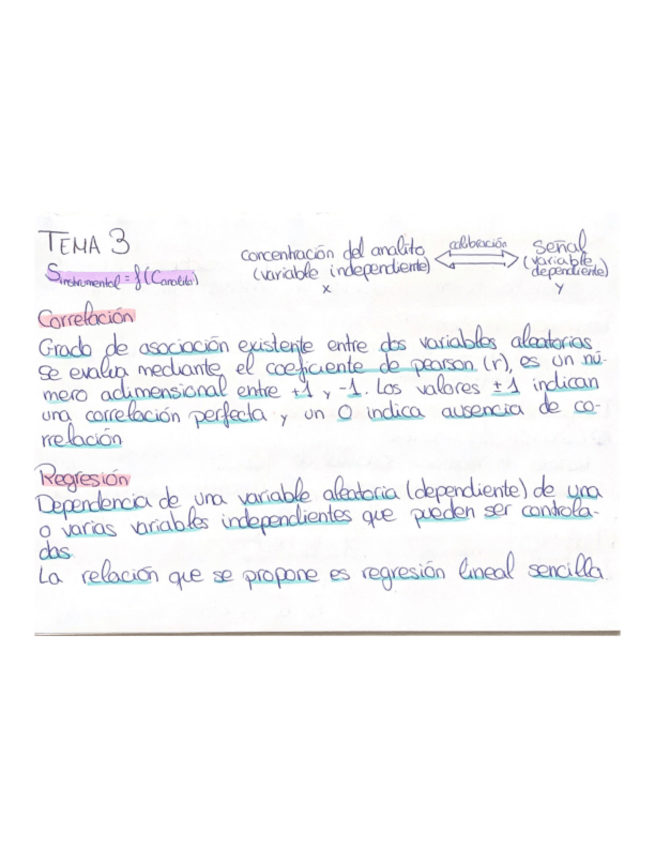 TEMA 3
Sinstrumental = f(Canalito)
concentración del analito
(variable independiente)
x
calibración
señal
(variable
dependiente)
y
Correlación
Grado de asociación existente entre dos variables aleatorias.
Se evalua mediante el coeficiente de pearson (r), es un nú-
mero adimensional entre +1 y -1. Los valores ±1 indican
una correlación perfecta y un 0 indica ausencia de co-
rrelación
Regresión
Dependencia de una variable aleatoria (dependiente) de una
o varias variables independientes que pueden ser controla-
das.
La relación que se propone es regresión lineal sencilla